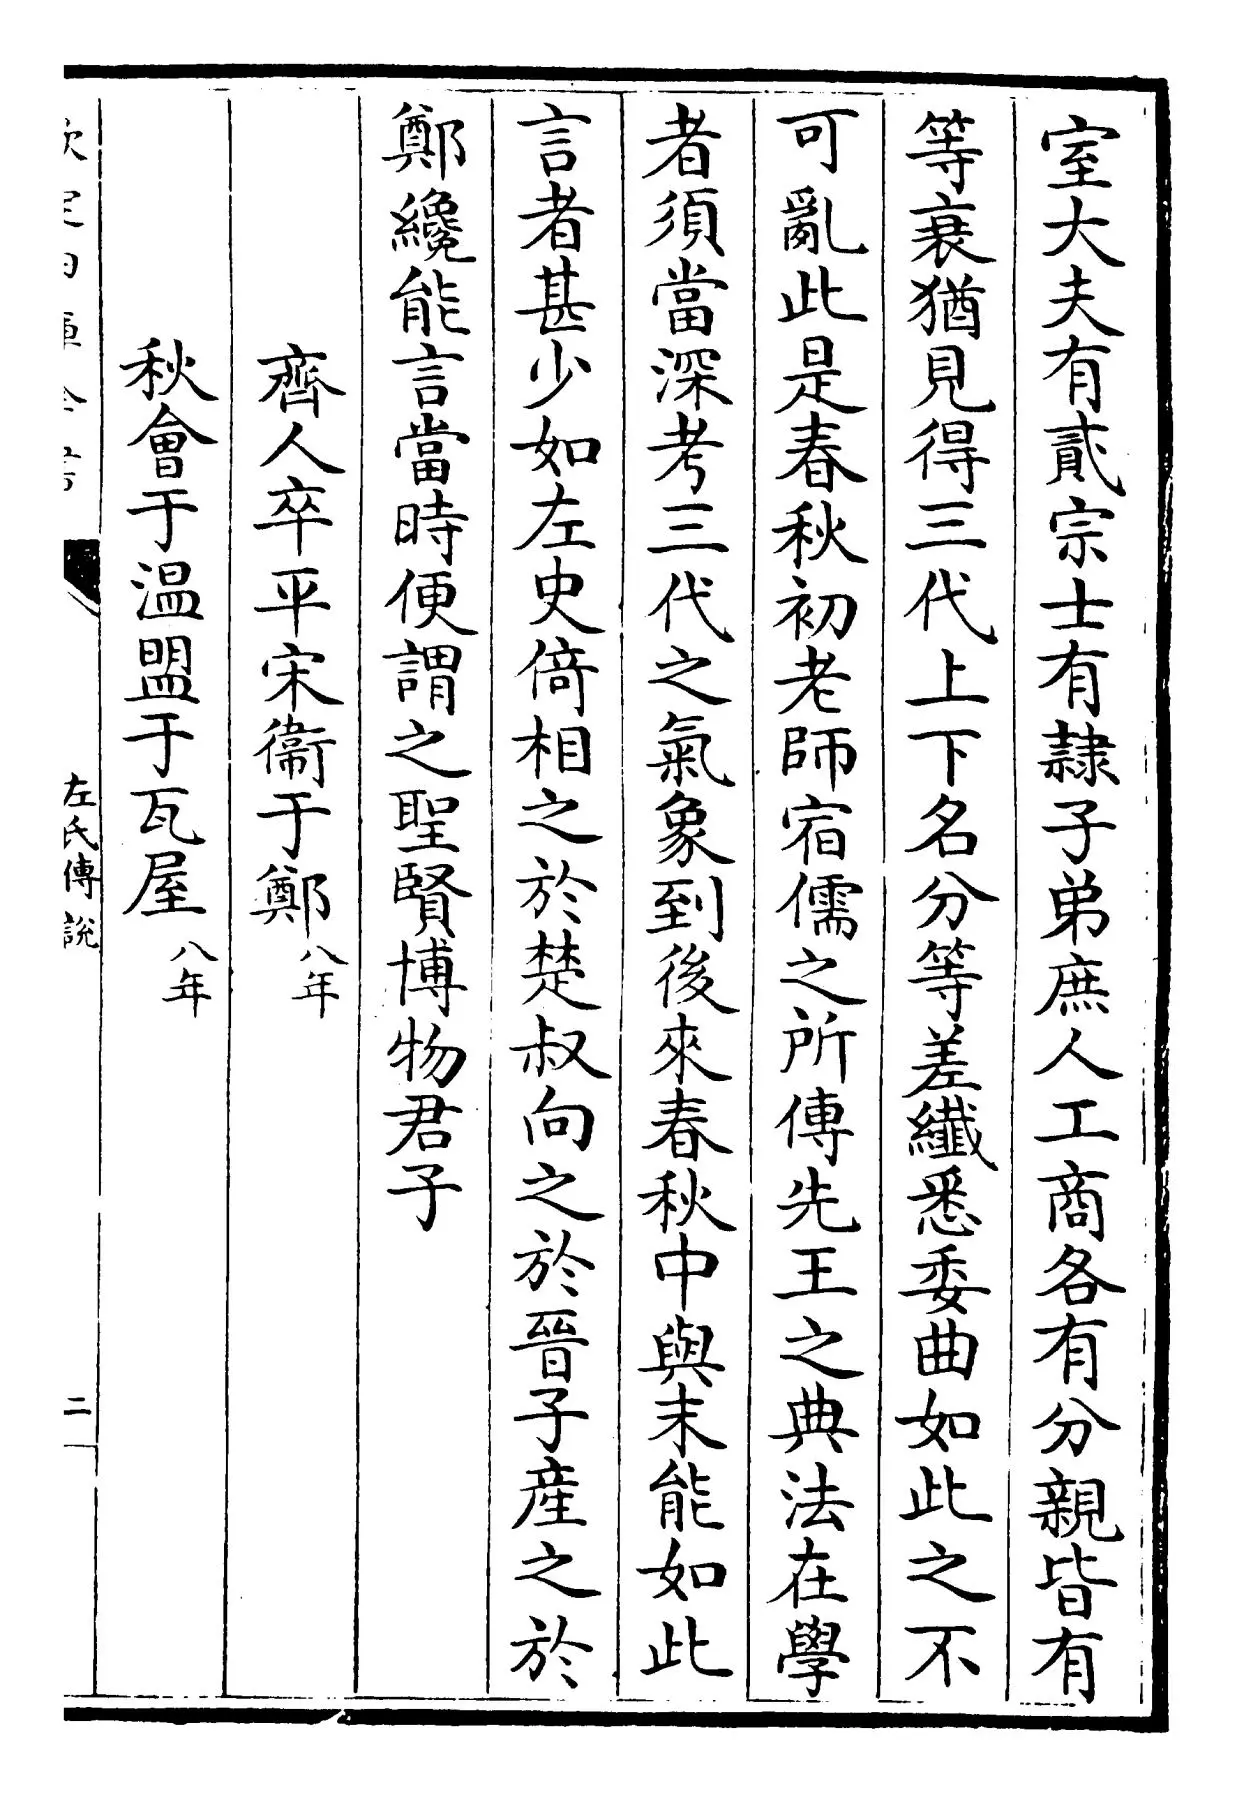 室大夫有貳宗士有隷子弟庶人工商各有分親皆有
等衰猶見得三代上下名分等差纖悉委曲如此之不
可亂此是春秋初老師宿儒之所傳先王之典法在學
者須當深考三代之氣象到後來春秋中與末能如此
言者甚少如左史倚相之於楚叔向之於晉子産之於
鄭纔能言當時便謂之聖賢博物君子
齊人卒平宋衞于鄭八年
秋會于温盟于瓦屋八年
欽定四庫全書
左氏傳說
二